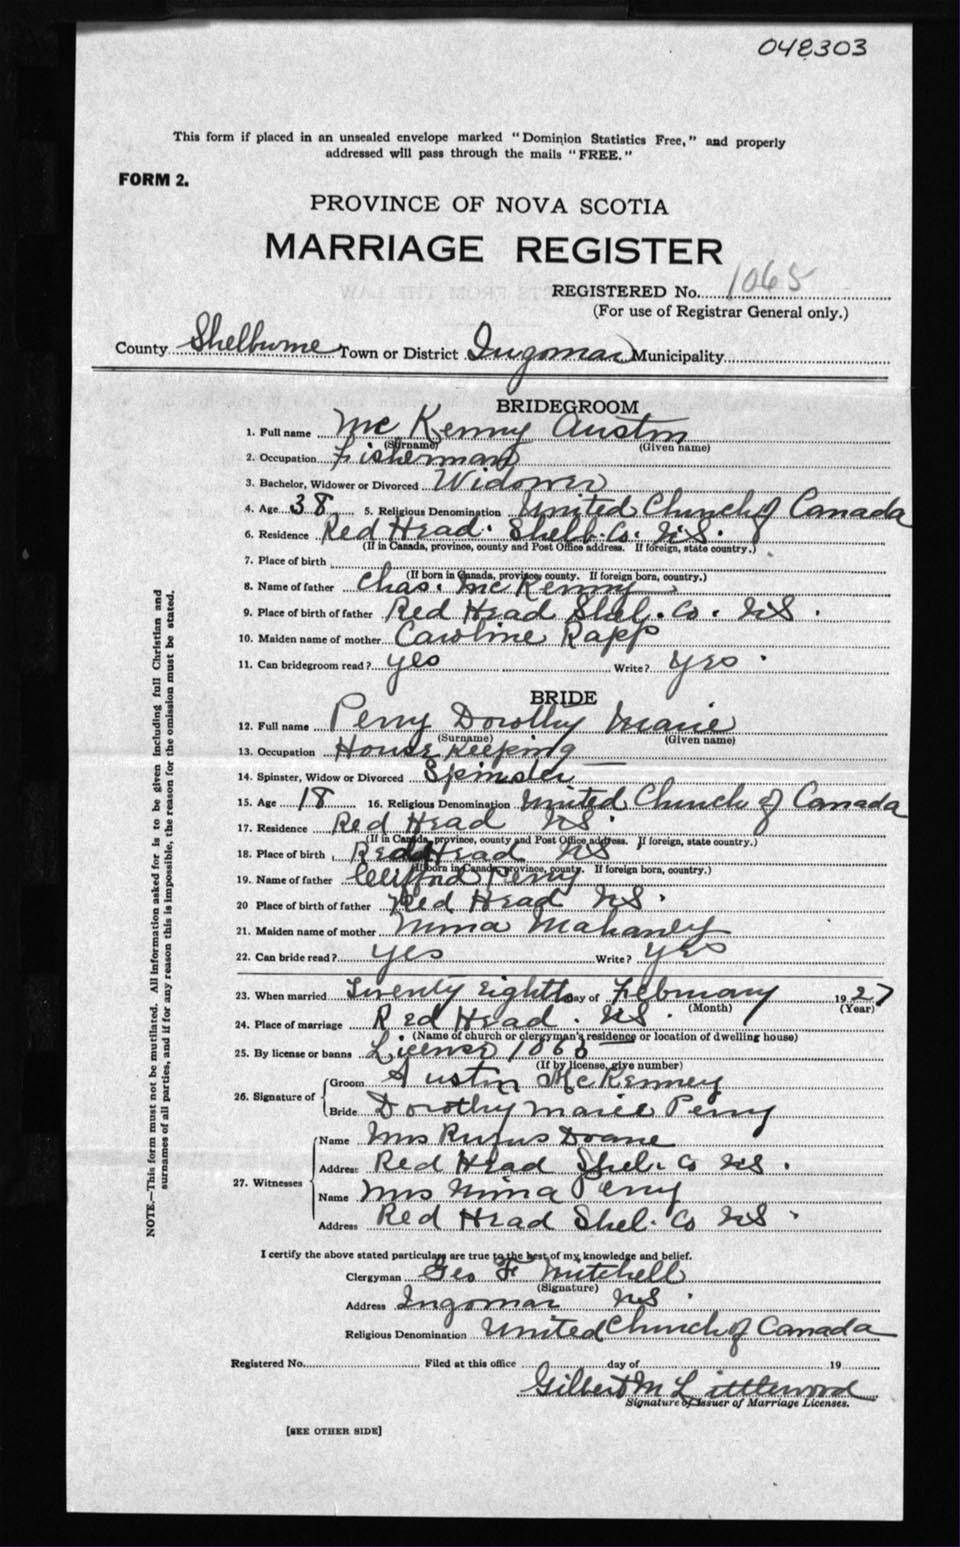 048303
This form if placed in an unsealed envelope marked "Dominion Statistics Free," and properly
addressed will pass through the mails "FREE."
FORM 2.
PROVINCE OF NOVA SCOTIA
MARRIAGE REGISTER
REGISTERED No. 1065
(For use of Registrar General only.)
County Shelburne Town or District Ingomar Municipality
BRIDEGROOM
1. Full name McKenny Austin
(Surname) (Given name)
2. Occupation Fisherman
3. Bachelor, Widower or Divorced Widower
4. Age 38 5. Religious Denomination United Church of Canada
6. Residence Red Head. Shelb. Co. N.S.
(If in Canada, province, county and Post Office address. If foreign, state country.)
7. Place of birth
(If born in Canada, province, county. If foreign born, country.)
8. Name of father Chas. McKenny
9. Place of birth of father Red Head Shel. Co. NS.
10. Maiden name of mother Caroline Rapp
11. Can bridegroom read? yes Write? yes.
BRIDE
12. Full name Perry Dorothy Marie
(Surname) (Given name)
13. Occupation House Keeping
14. Spinster, Widow or Divorced Spinster
15. Age 18 16. Religious Denomination United Church of Canada
17. Residence Red Head NS.
(If in Canada, province, county and Post Office address. If foreign, state country.)
18. Place of birth Red Head NS
(If born in Canada, province, county. If foreign born, country.)
19. Name of father Clifford Perry
20 Place of birth of father Red Head NS.
21. Maiden name of mother Nima Mahaney
22. Can bride read? yes Write? yes
23. When married Twenty Eighth day of February 1927
(Month) (Year)
24. Place of marriage Red Head. NS.
(Name of church or clergyman's residence or location of dwelling house)
25. By license or banns License
(If by license, give number)
26. Signature of
Groom Austin McKenney
Bride Dorothy Marie Perry
27. Witnesses
Name Mrs Rufus Doane
Address Red Head Shel. Co NS.
Name Mrs Nima Perry
Address Red Head Shel. Co NS.
I certify the above stated particulars are true to the best of my knowledge and belief.
Clergyman Geo F Mitchell
(Signature)
Address Ingomar NS.
Religious Denomination United Church of Canada
Registered No. Filed at this office day of 19
Gilbert M Littlewood
Signature of Issuer of Marriage Licenses.
[SEE OTHER SIDE]
NOTE.—This form must not be mutilated. All information asked for is to be given including full Christian and
surnames of all parties, and if for any reason this is impossible, the reason for the omission must be stated.